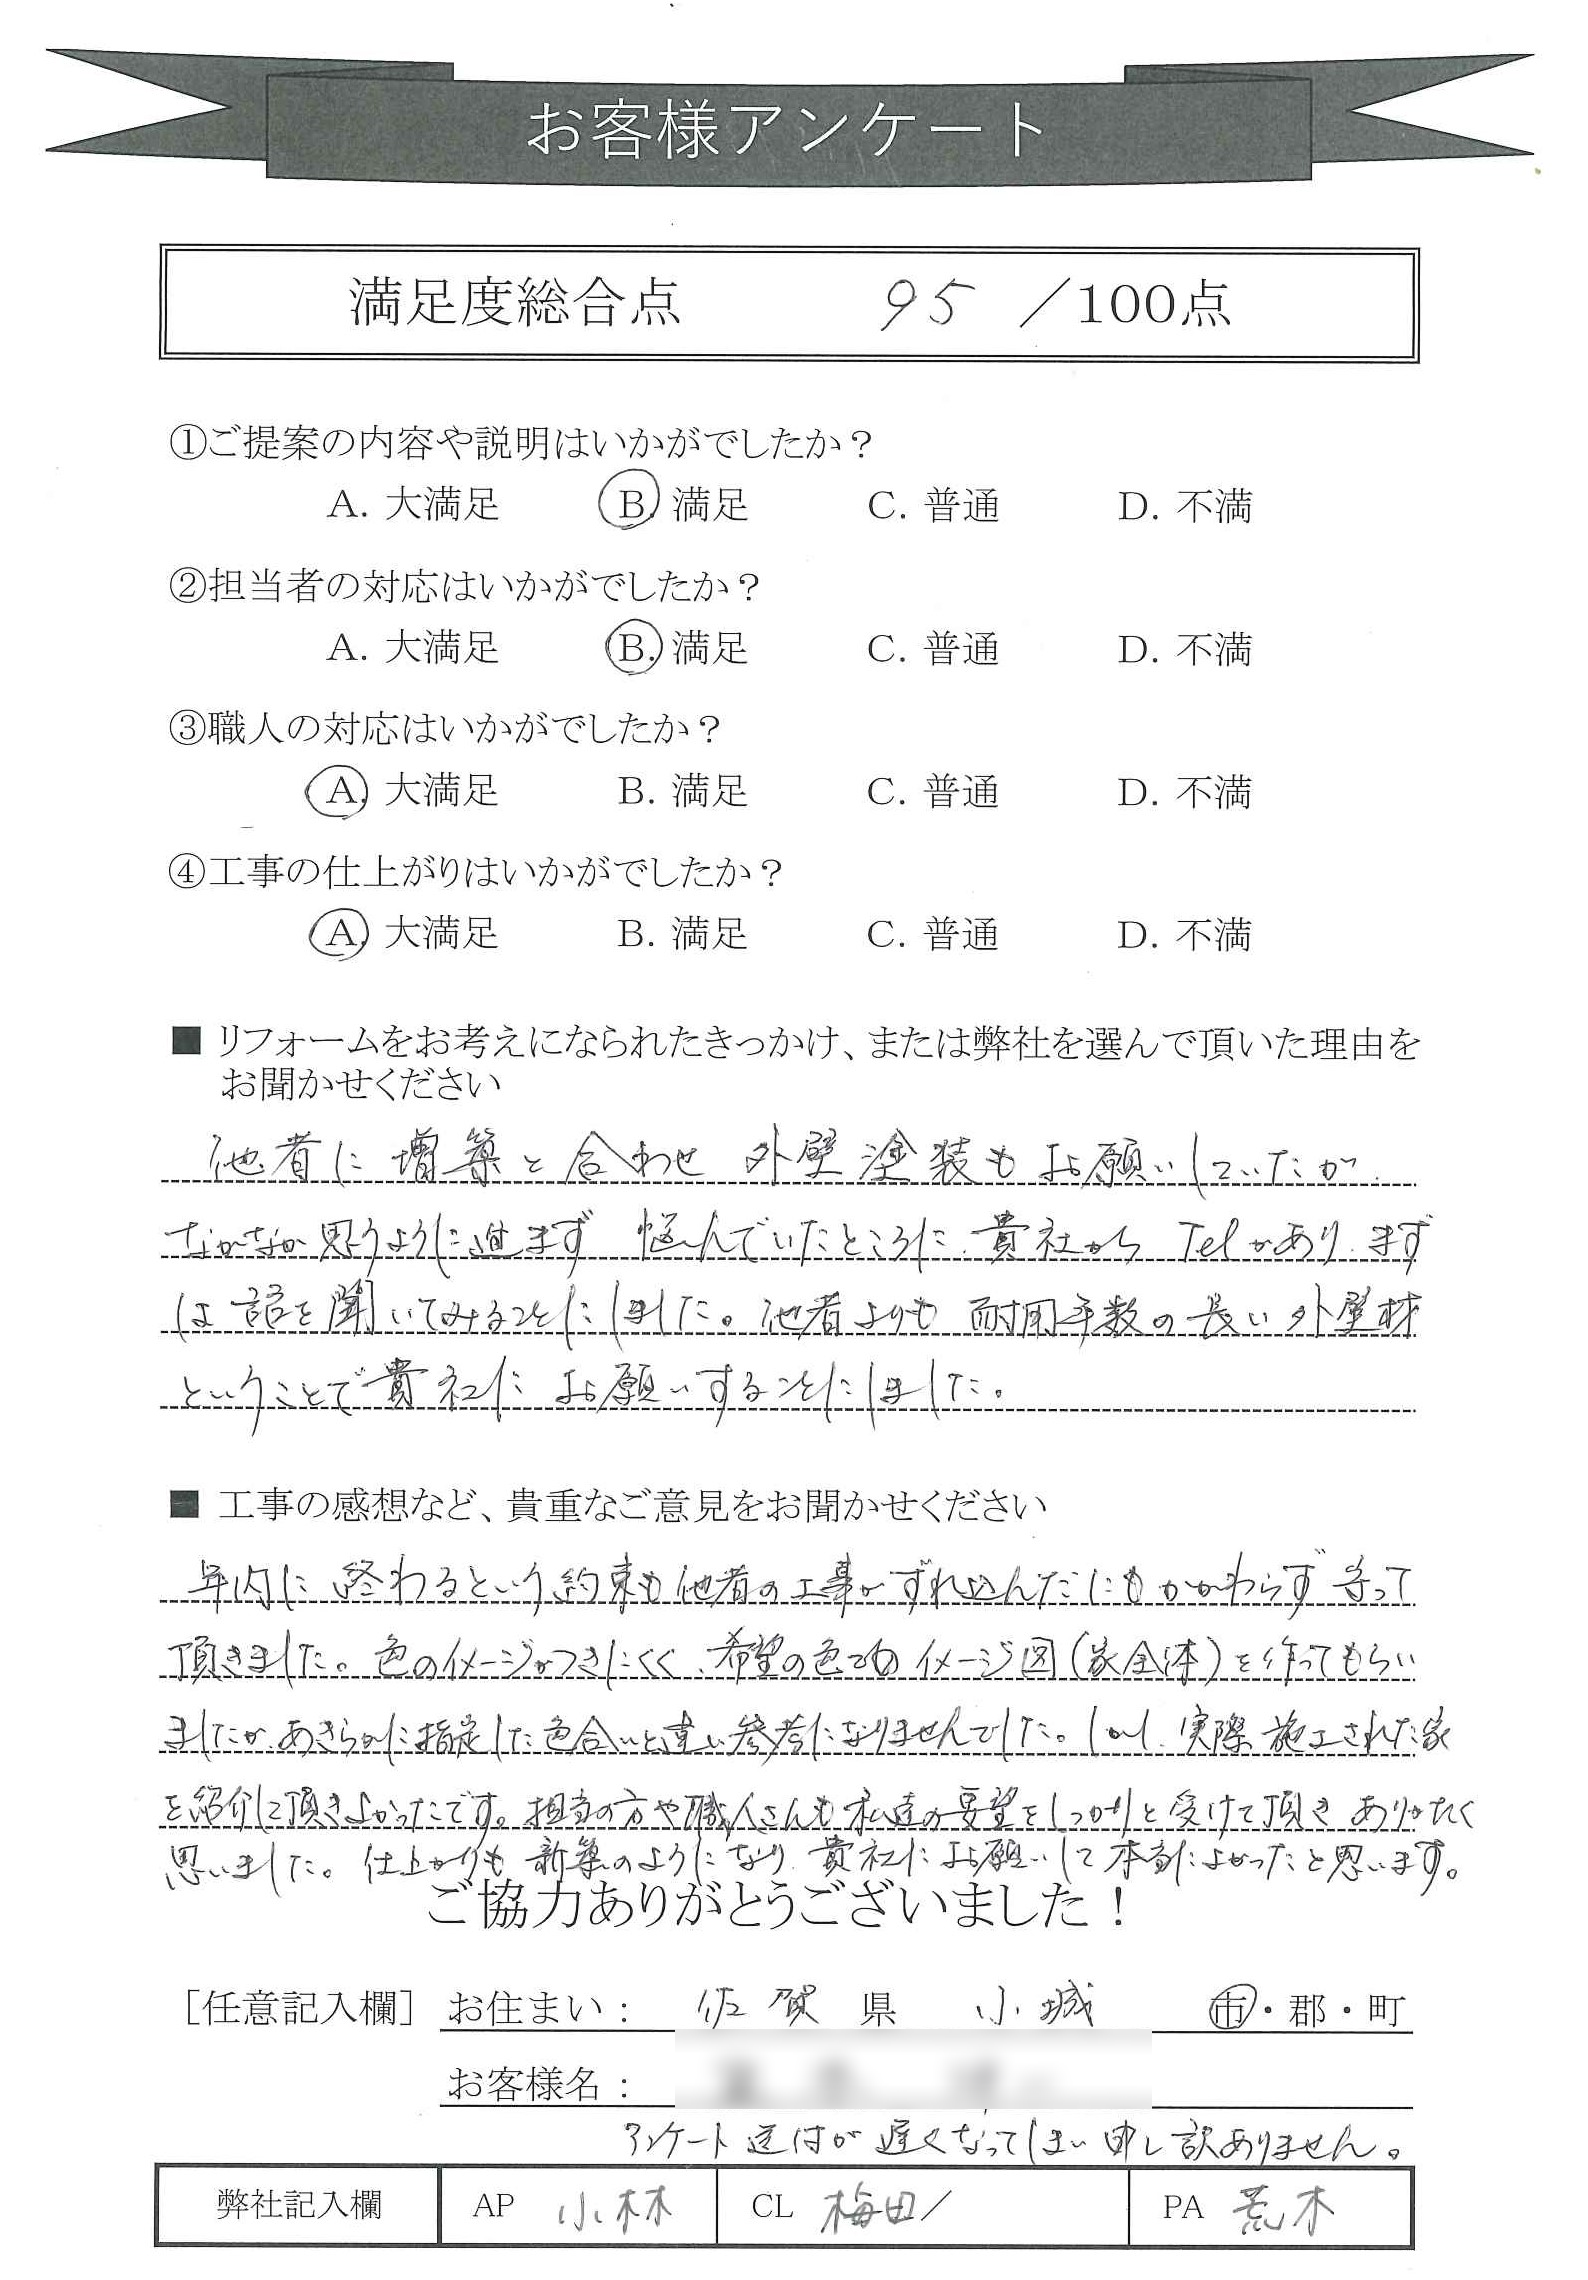 お客様アンケート
満足度総合点 95 ／100点
①ご提案の内容や説明はいかがでしたか？
A. 大満足 B. 満足 C. 普通 D. 不満
②担当者の対応はいかがでしたか？
A. 大満足 B. 満足 C. 普通 D. 不満
③職人の対応はいかがでしたか？
A. 大満足 B. 満足 C. 普通 D. 不満
④工事の仕上がりはいかがでしたか？
A. 大満足 B. 満足 C. 普通 D. 不満
■ リフォームをお考えになられたきっかけ、または弊社を選んで頂いた理由を
お聞かせください
他者に増築と合わせ外壁塗装もお願いしていたが、
なかなか思うように進まず 悩んでいたところに、貴社から Telがあり、まず
は話を聞いてみることにしました。他者よりも耐用年数の長い外壁材
ということで貴社にお願いすることにしました。
■ 工事の感想など、貴重なご意見をお聞かせください
年内に終わるという約束も他者の工事がずれ込んだにもかかわらず守って
頂きました。色のイメージがつきにくく、希望の色でのイメージ図(家全体)を作ってもらい
ましたが、あきらかに指定した色合いと違い参考になりませんでした。しかし、実際施工された家
を紹介して頂きよかったです。担当の方や職人さんも私達の要望をしっかりと受けて頂き ありがたく
思いました。仕上がりも新築のようになり、貴社にお願いして本当によかったと思います。
ご協力ありがとうございました！
［任意記入欄］ お住まい： 佐賀 県 小城 市・郡・町
お客様名：
アンケート送付が遅くなってしまい申し訳ありません。
弊社記入欄 AP 小林 CL 梅田/ PA 荒木